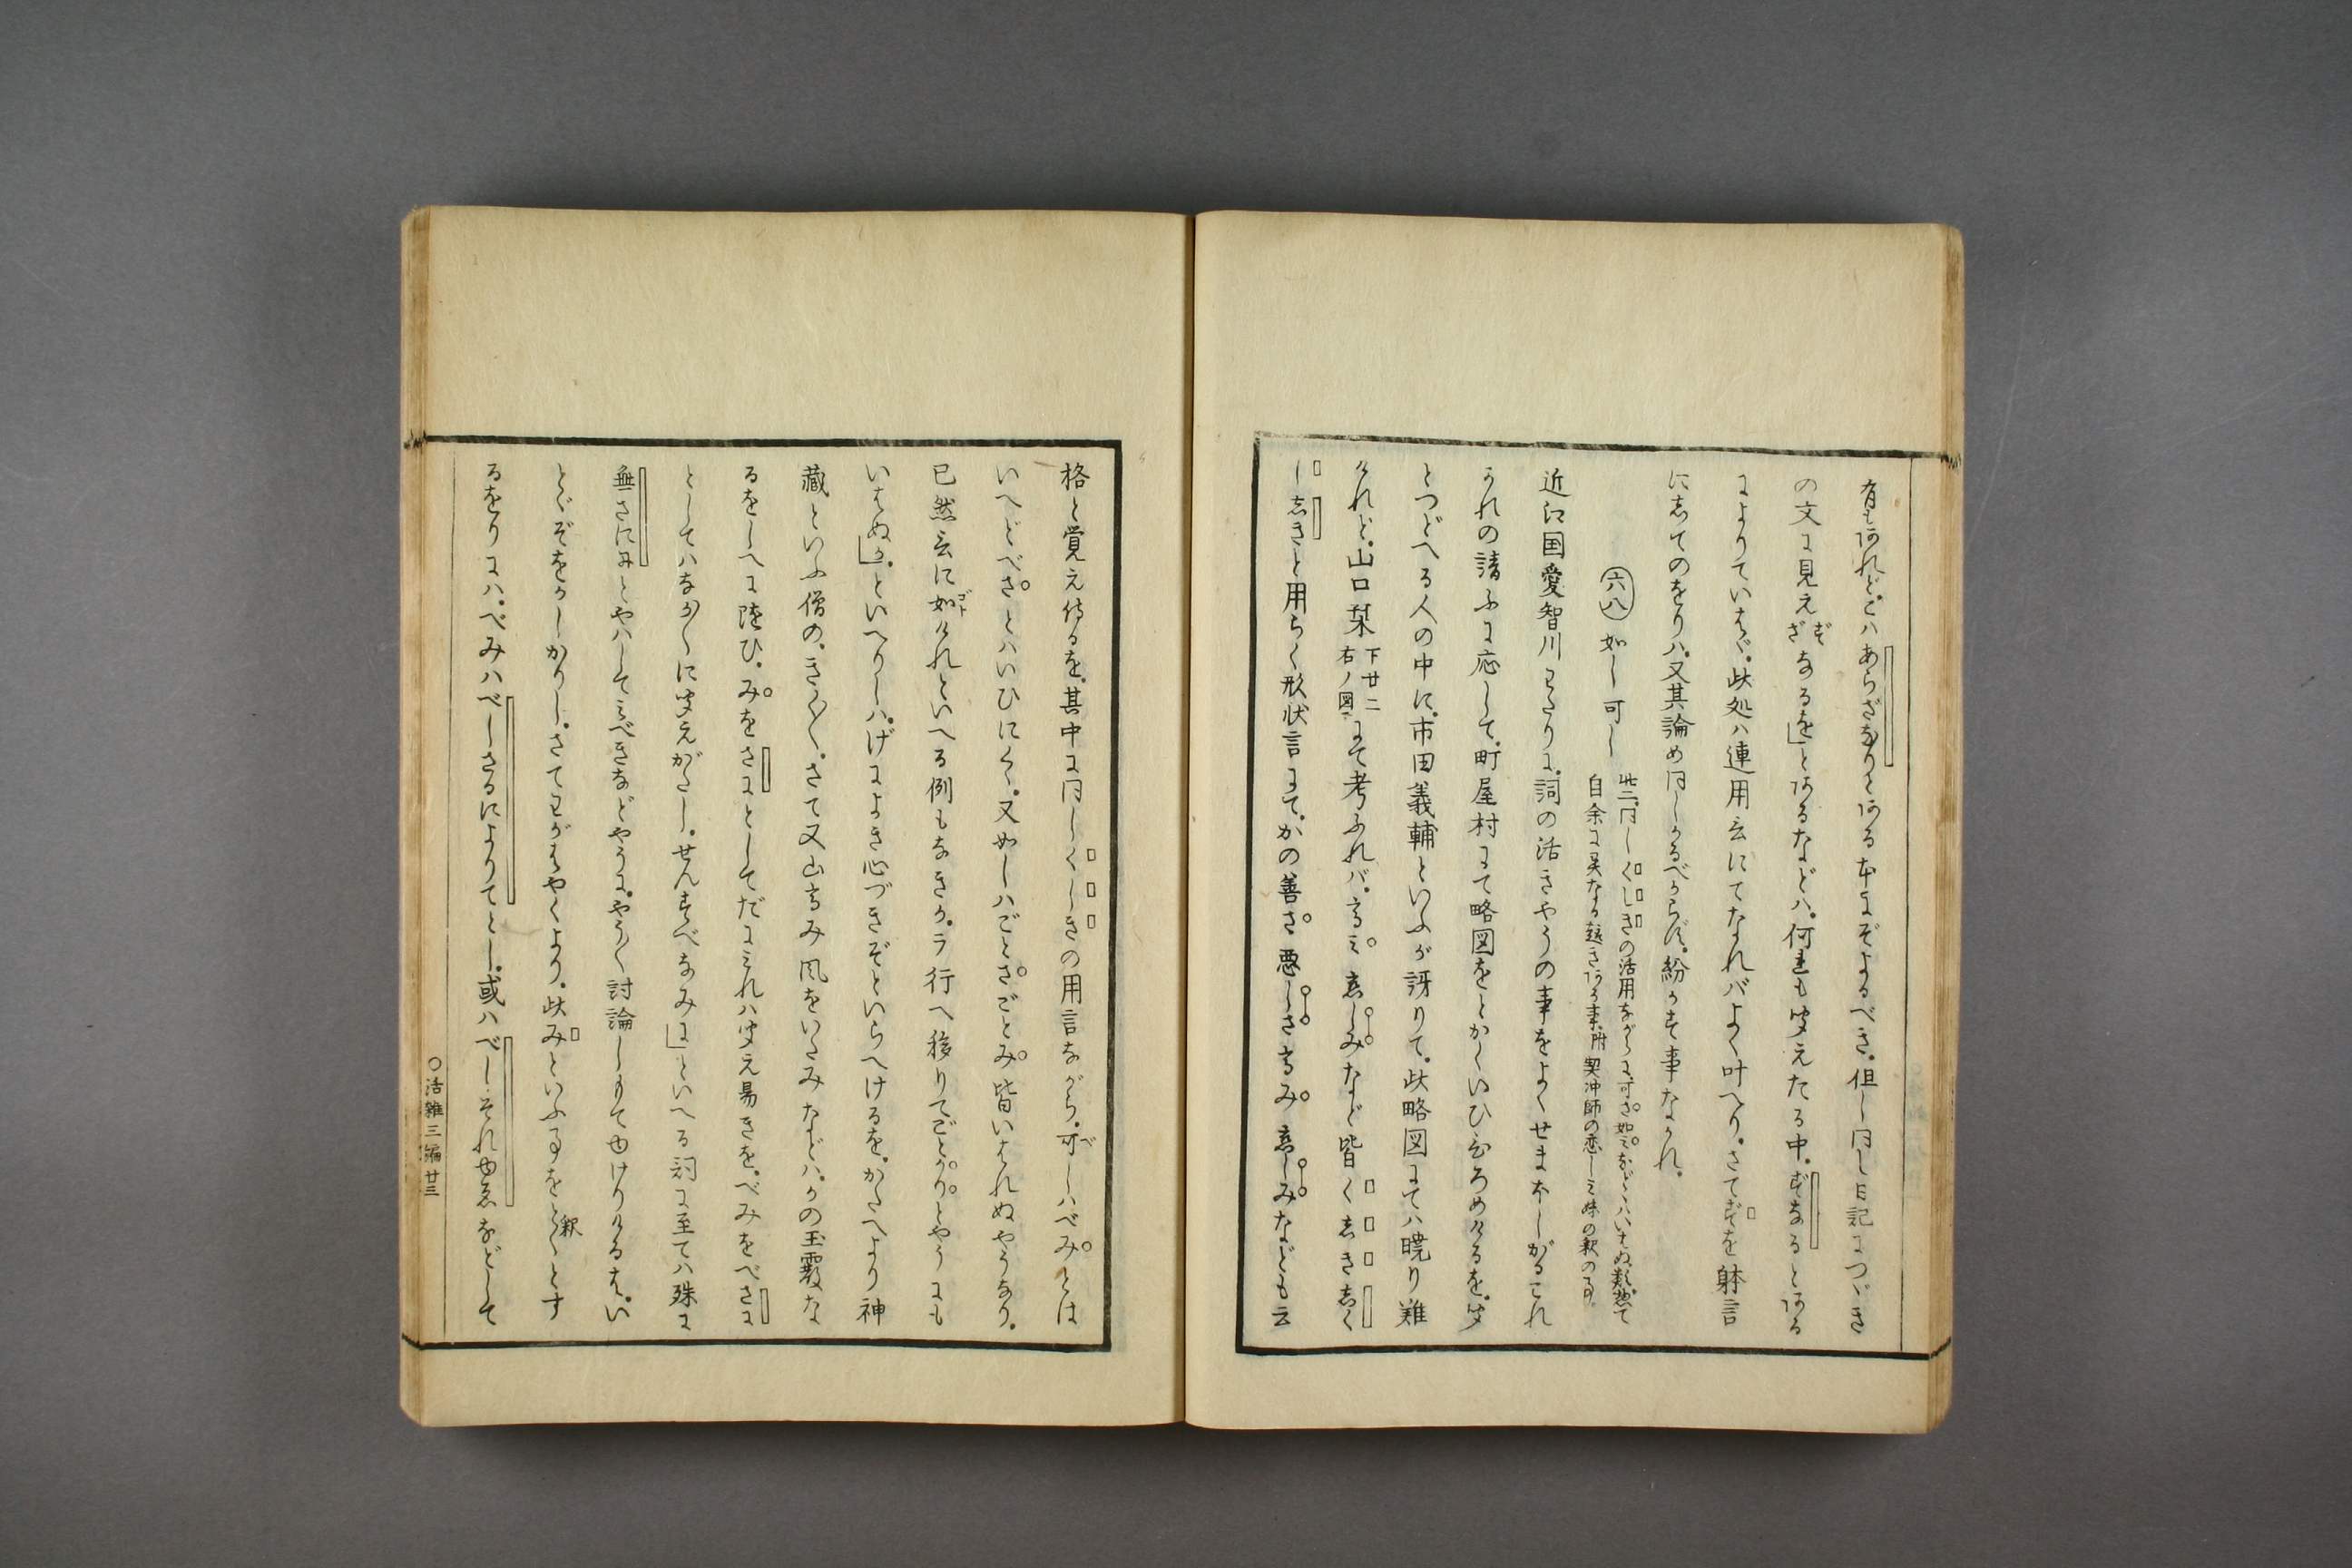 有も阿れど。こハあらざなりと阿る本にぞよるべき。但し同し日記につゞき
の文に見えざなるを」と阿るなどハ。何連も聞えたる中。ずなると阿る
によりていはゞ。此処ハ連用言にてなれバよく叶へり。さてずを躰言
にしてのをりハ。又其論め同しかるべからず。紛かす事なかれ。
六八 如し 可し
此二同しくしきの活用ながらに可さ。如み。などゝハいはぬ類。惣て
自余に異なる趣き阿る事。附 契沖師の恋しミ妹の釈の事。
近江国愛智川わたりに。詞の活きやうの事をよくせまホしがるこれ
かれの請ふに応して。町屋村にて略図をとかくいひひろめけるを。聞
とつどへる人の中に。市田義輔といふが訝りて。此略図にてハ暁り難
けれど。山口栞下廿二右ノ図にて考ふれバ。高ミ 恋しみなど皆くしきしく
ししきと用らく形状言にて。かの善さ 悪しさ 高み 恋しみなども云
格と覚え侍るを。其中に同しくしきの用言ながら。可しハべみとは
いへどべさとハいひにくゝ。又如しハごとさごとみ皆いはれぬやうなり。
已然言に如けれといへる例もなきか。ラ行へ移りてごとかりとやうにも
いはぬか」。といへりしハ。げによき心づきぞといらへけるを。かたへより神
藏といふ僧の。きゝ〳〵。さて又山高み風をいたみなどハ。かの玉霰な
るをしへに隨ひ。みをさにとしてだにミれハ聞え易きを。べみをべさに
としてハなか〳〵に聞えがたし。せんすべなみに」といへる詞に至てハ殊に
無さににとやハしてミべきなどやうに。やう〳〵討論しもて由けりけるは。い
とゞぞをかしかりし。さてわがはやくより。此みといふ事をとく釈とす
るをりにハ。べみハべしさるによりてとし。或ハべし。それ由ゑなどして
○活雜三編 廿三